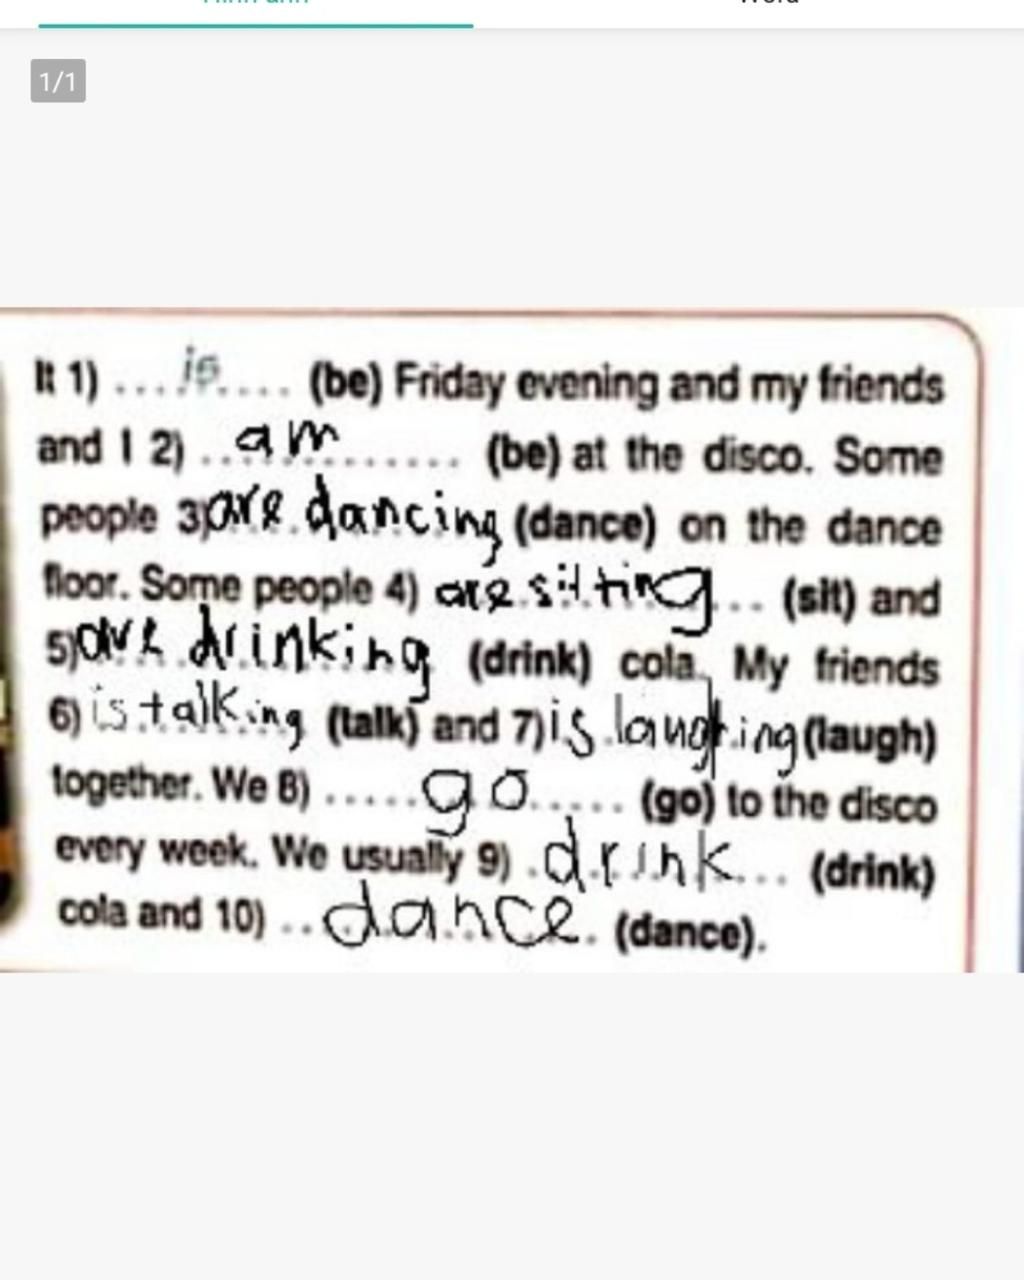 Word
1/1
It 1) ... is .... (be) Friday evening and my friends
and I 2) .. am ........ (be) at the disco. Some
people 3) are dancing (dance) on the dance
floor. Some people 4) are sitting ... (sit) and
5) are drinking (drink) cola. My friends
6) is talking (talk) and 7) is laughing (laugh)
together. We 8) ..... go ..... (go) to the disco
every week. We usually 9) . drink ... (drink)
cola and 10) .. dance . (dance).